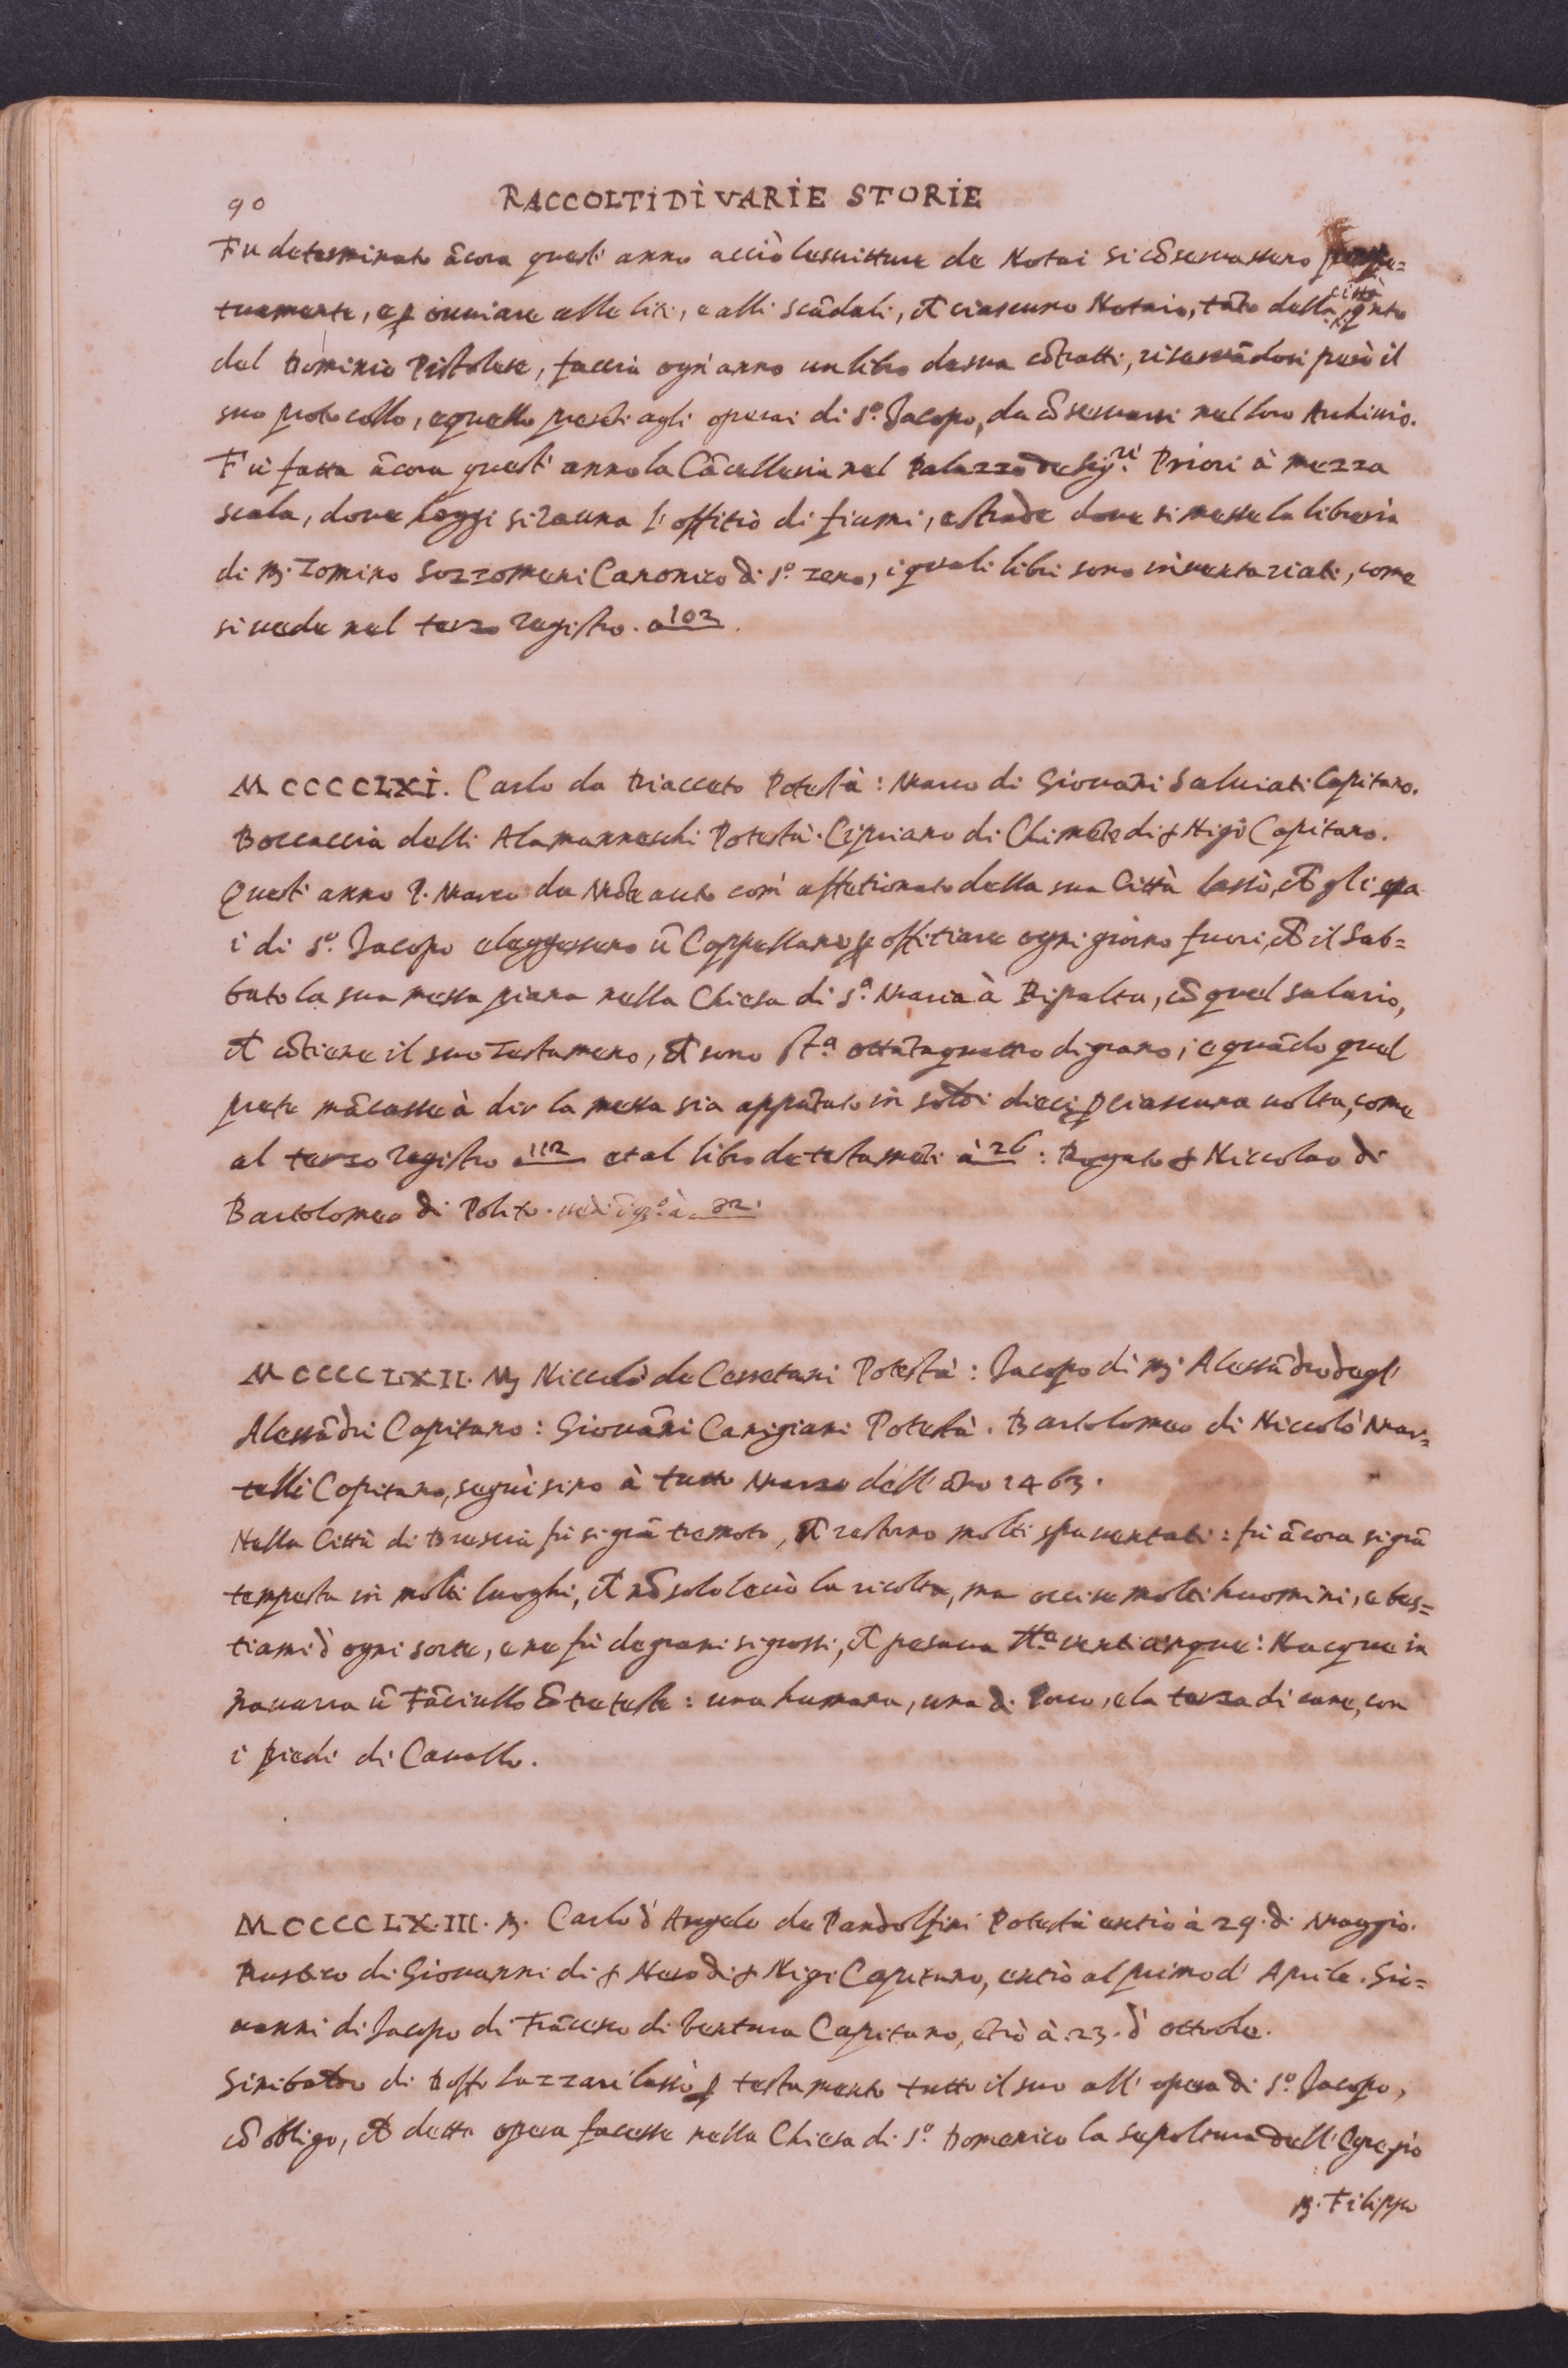 90 RACCOLTI DÌ VARIE STORIE
Fu determinato ãcora quest' anno acciò lescritture de Notai si cõseruassero perpe=
tuamente, e ꝑ ouuiare alle liti, e alli scãdali, ch̃ ciascuno Notaio, tãto della città, quãto
del Dominio Pistolese, faccia ogn' anno un libro desua cõtratti, riseruãdosi però il
suo protocollo, equello presti agli operai di S.º Jacopo, da cõseruarsi nel loro Archiuio.
Fù fatta ãcora quest' anno la Cãcelleria nel Palazzo de Sig.ri Priori à mezza
scala, doue hoggi si rauna l' offitiò di fiumi, e strade doue si messe la libreria
di M. Zomino Sozzomeni Canonico di S.º Zeno, i quali libri sono inuentariati, come
si uede nel terzo registro. a 102.
MCCCCLXI. Carlo da Diacceto Potestà: Marco di Giouãni Saluiati Capitano.
Boccaccia delli Alamanneschi Potestà. Cipriano di Chimẽte di s Nigi Capitano.
Quest' anno P. Marco da Mõte aceto com' affetionato della sua Città lassò, ch̃ gli opa
i di S.º Jacopo eleggessero ũ Cappellano ꝑ offitiare ogni giorno fuori, ch̃ il Sab=
bato la sua messa piana nella Chiesa di S.ª Maria à Ripalta, cõ quel salario,
ch̃ cõtiene il suo Testameno, ch̃ sono st.ª ottãtaquattro digrano; e quãdo quel
prete mãcasse à dir la messa sia appũtato in soldi dieci ꝑ ciascuna uolta, come
al terzo registro a 112 et al libro de testamẽti à 26: Rogato s Niccolao di
Bartolomeo di Polito. à 32.
MCCCCLXII. M Niccolò de Cerretani Potestà: Jacopo di M. Alessãdro degl'
Alessãdri Capitano: Giouãni Canigiani Potestà. Bartolomeo di Niccolò Mar=
telli Capitano, seguì sino à tutto Marzo dell' ãno 1463.
Nella Città di Brescia fù si grã tremoto, ch̃ restorno molti spauentati: fù ãcora si grã
tempesta in molti luoghi, ch̃ nõ solo leuò la ricolta, ma occise molti huomini, e bes=
tiami d' ogni sorte, e ne fù degrani si grossi, ch̃ pesaua tt.e uenticinque: Nacque in
Nauarra ũ Fãciullo cõ tre teste: una humana, una di Porco, e la terza di cane, con
i piedi di Cauallo.
MCCCCLXIII. M. Carlo d' Angelo de Pandolfini Potestà entrò à 29. di Maggio.
Rustico di Giouanni di s Nero di s Nigi Capitano, entrò al primo d' Aprile. Gio=
uanni di Jacopo di Frãcesco di Ventura Capitano, ẽtrò à 23. d' ottobre.
Sinibaldo di Doffo Lazzari lassò ꝑ testamento tutto il suo all' opera di S.º Jacopo,
cõ obligo, ch̃ detta opera facesse nella Chiesa di S.º Domenico la sepoltura dell' Egregio
M. Filippo